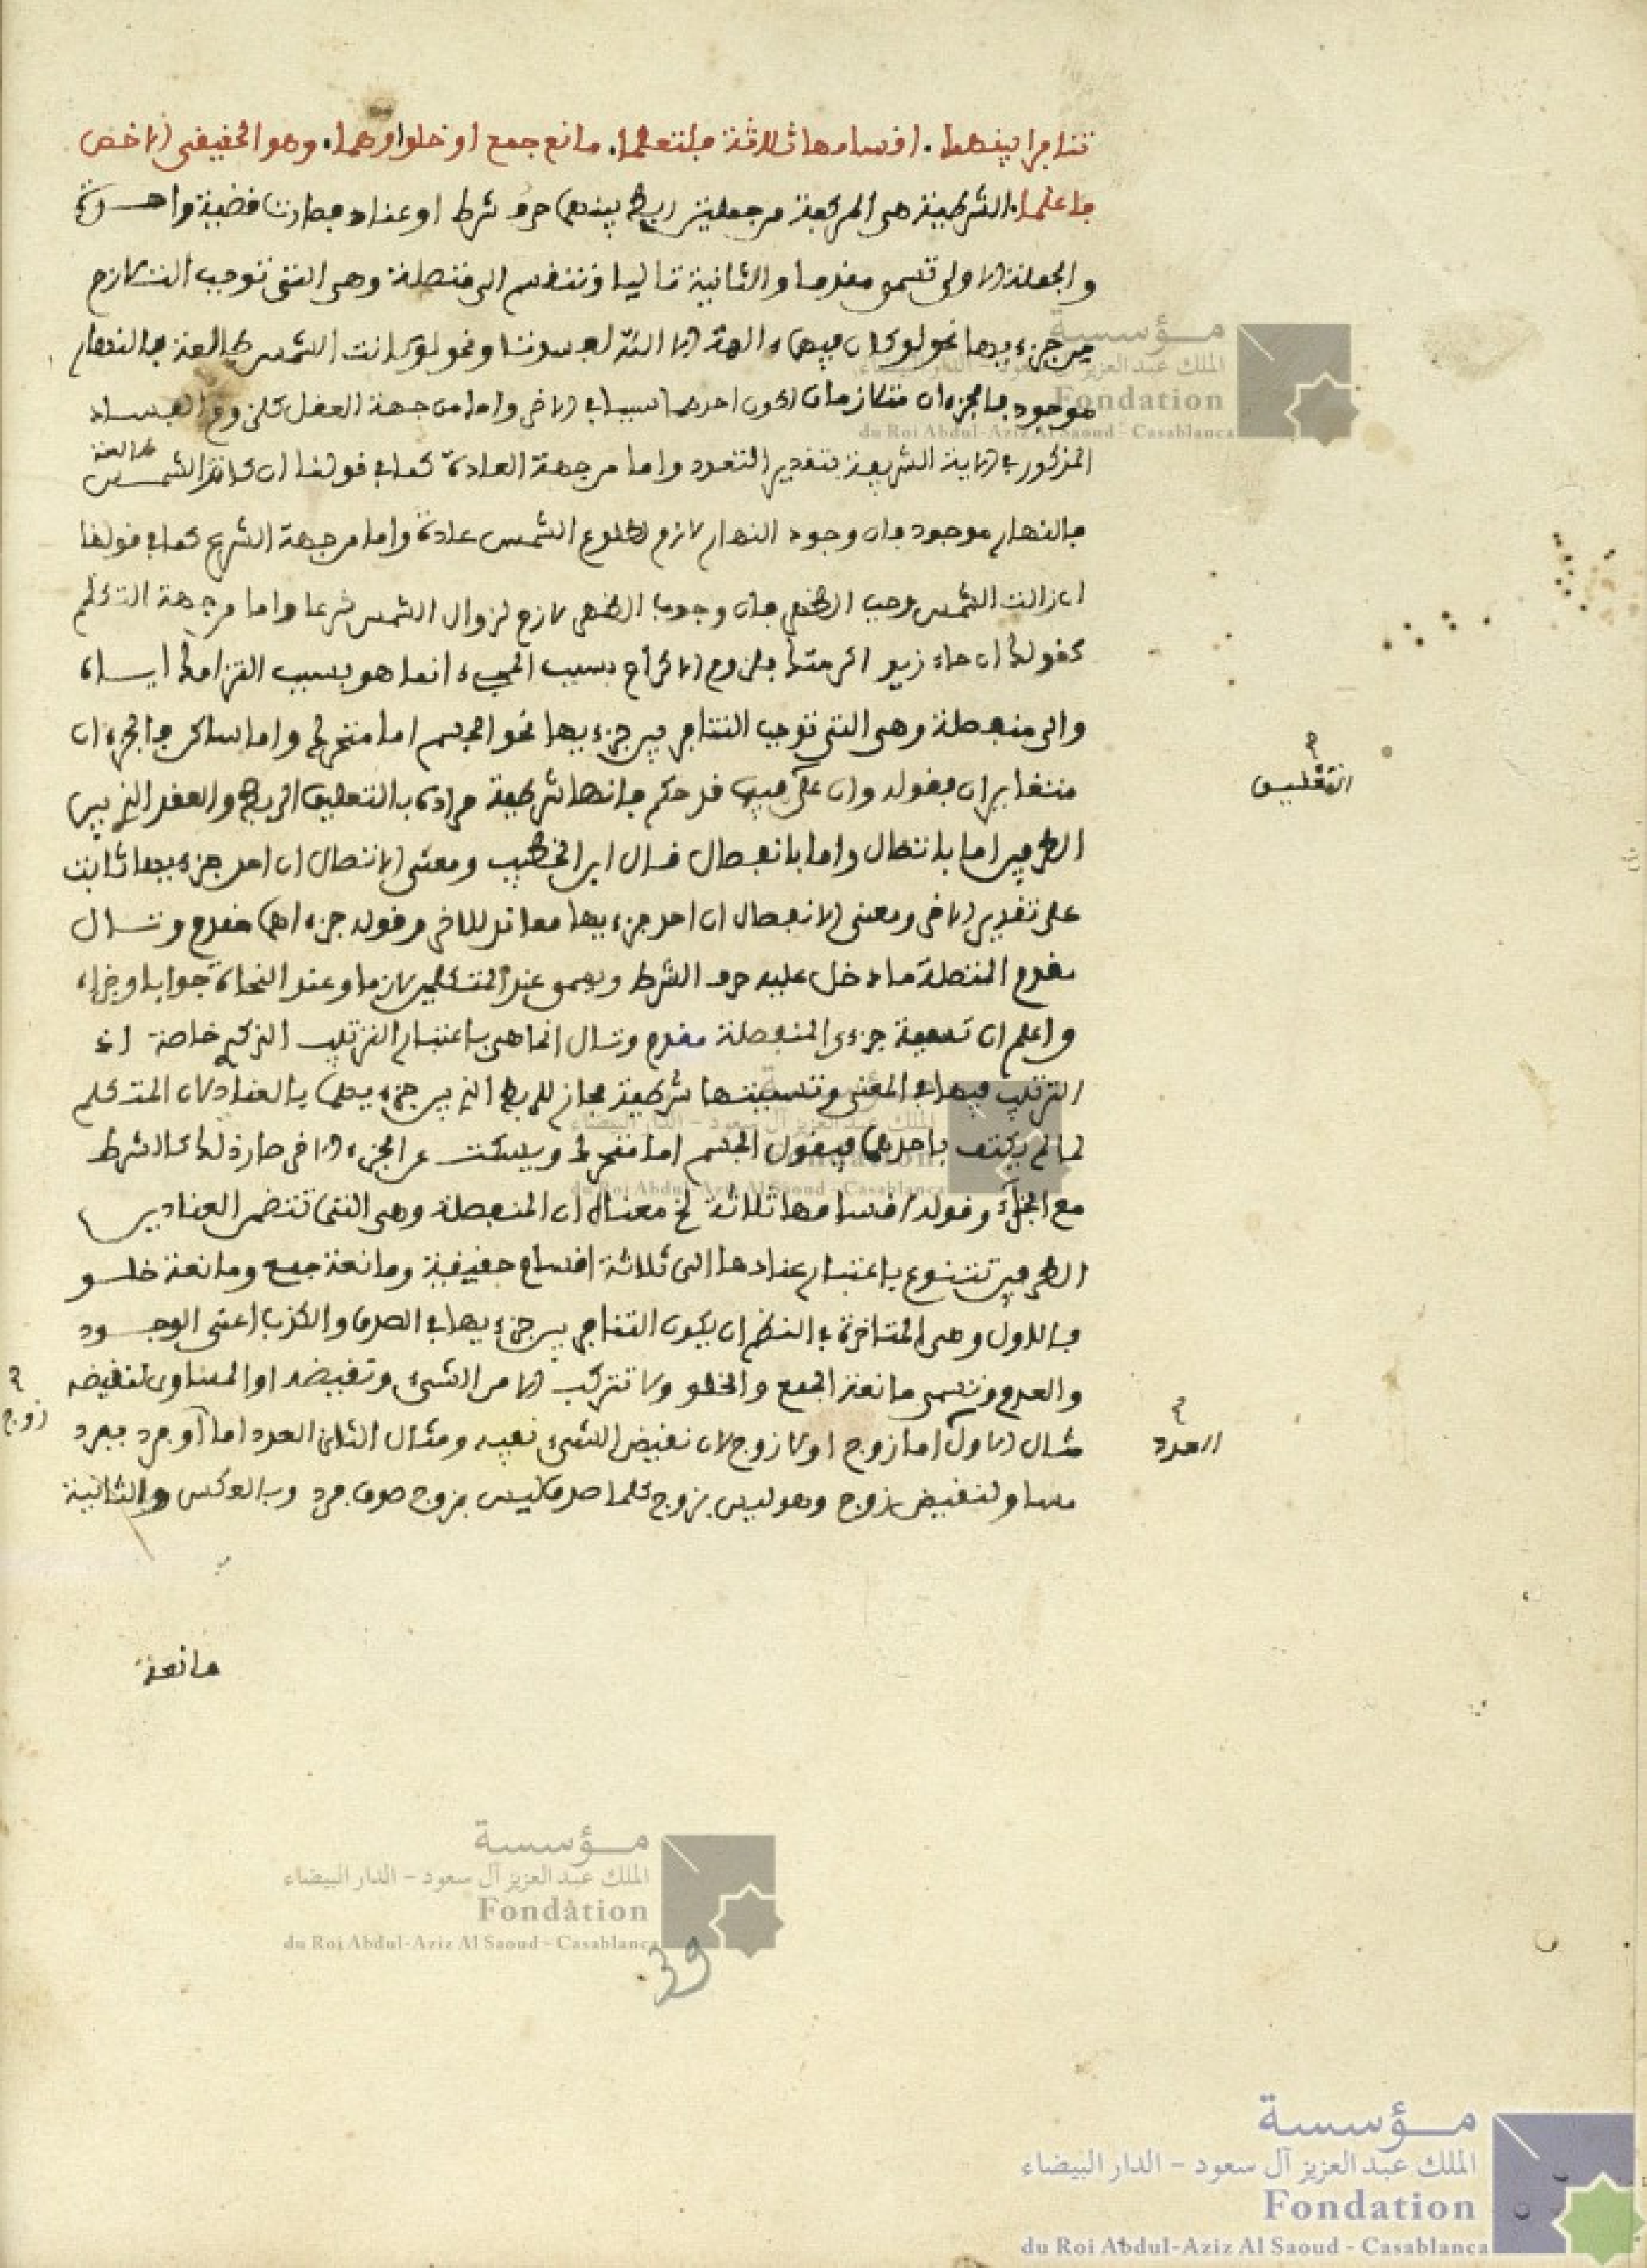 تنافر بينهما . اقسامها ثلاثة فلتعلما . مانع جمع او خلو او هما . وهو الحقيقي الاخص
فاعلما . الشرطية هي المركبة من جملتين ربط بينهما حرف شرط او عناد فصارت قضية واحدة
والجملة الاولى تسمى مقدما والثانية تاليا وتنقسم الى متصلة وهي التي توجب التلازم
بين جزءيها نحو لو كان فيهما ءالهة الا الله لفسدتا ونحو لو كانت الشمس طالعة فالنهار
موجود فالجزءان متلازمان لكون احدهما سببا في الاخر واما من جهة العقل كلزوم الفساد
المذكور في الاية الشريفة بتقدير التعدد واما من جهة العادة كما في قولنا ان كانت الشمس طالعة
فالنهار موجود فان وجود النهار لازم لطلوع الشمس عادة واما من جهة الشرع كما في قولنا
ان زالت الشمس وجب الظهر فان وجوب الظهر لازم لزوال الشمس شرعا واما من جهة التكلم
كقولك ان جاء زيد اكرمتك فلزوم الاكرام بسبب المجيء انما هو بسبب التزامك اياه
والى منفصلة وهي التي توجب التنافر بين جزءيها نحو الجسم اما متحرك واما ساكن فالجزءان
متغايران فقوله وان على التعليق فيها قد حكم فانها شرطية مراده بالتعليق الربط والعقد الذي بين
الطرفين اما باتصال واما بانفصال قال ابن الخطيب ومعنى الاتصال ان احد جزءيها ثابت
على تقدير الاخر ومعنى الانفصال ان احد جزءيها معاند للاخر وقوله جزءاهما مقدم وتال
مقدم المتصلة ما دخل عليه حرف الشرط ويسمى عند المتكلمين لازما وعند النحاة جوابا وجزاء
واعلم ان تسمية جزءي المنفصلة مقدم وتال انما هي باعتبار الترتيب الذكري خاصة اذ
الترتيب فيها في المعنى وتسميتها شرطية مجاز للربط الذي بين جزءيها بالعناد لان المتكلم
لما لم يكتف باحدهما فيقول الجسم اما متحرك ويسكت عن الجزء الاخر صار ذلك كالشرط
مع الجزاء وقوله اقسامها ثلاثة الخ معناه ان المنفصلة وهي التي تتضمن العناد بين
الطرفين تتنوع باعتبار عنادها الى ثلاثة اقسام حقيقية ومانعة جمع ومانعة خلو
فالاول وهي المتاخرة في النظم ان يكون التنافر بين جزءيها في الصدق والكذب اعني الوجود
والعدم وتسمى مانعة الجمع والخلو ولا تتركب الا من الشيء ونقيضه او المساوي لنقيضه
مثال الاول اما زوج او لا زوج لان نقيض الشيء نفيه ومثال الثاني العدد اما او فرد ففرد
العدد
زوج
مساو لنقيض زوج وهو ليس بزوج كلما صدق ليس بزوج صدق فرد وبالعكس والثانية
مانعة
39
مؤسسة
الملك عبد العزيز آل سعود - الدار البيضاء
Fondation
du Roi Abdul-Aziz Al Saoud - Casablanca